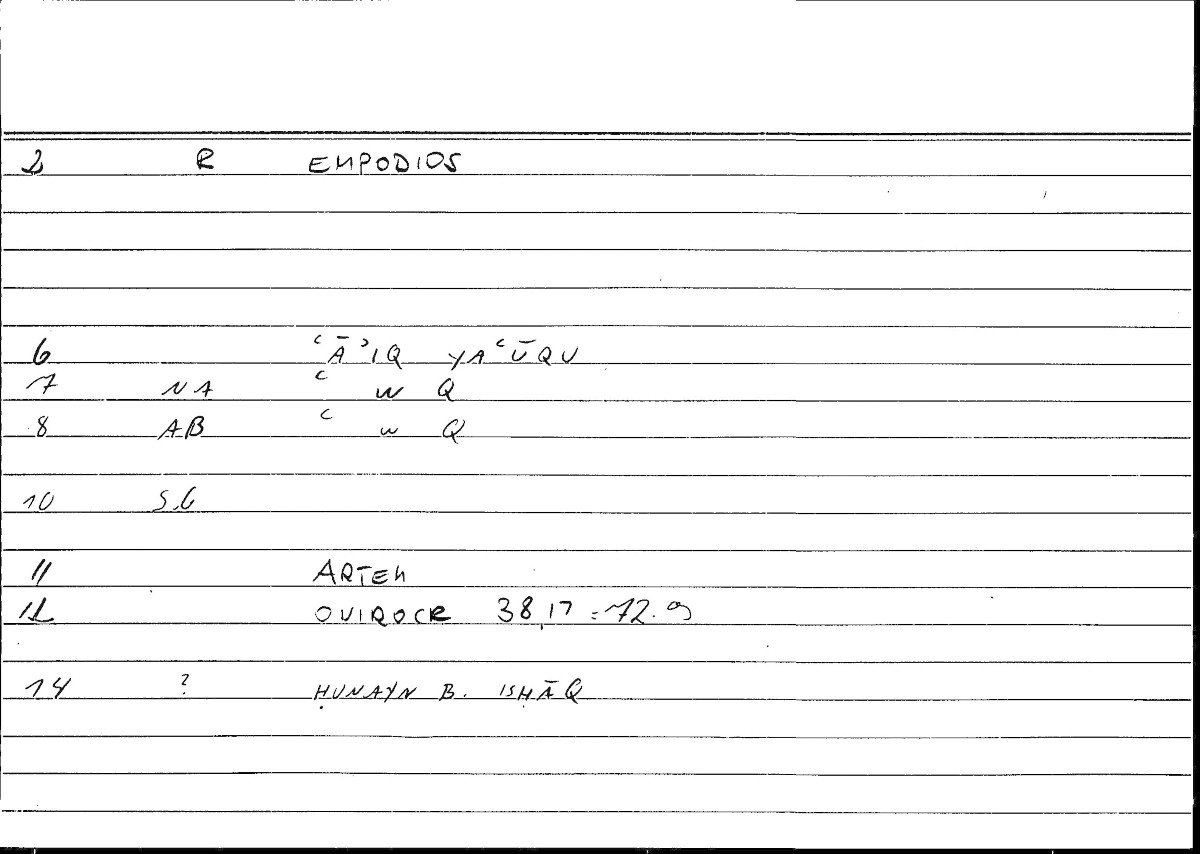 2 R EMPODIOS
6 ʿĀʾIQ YAʿŪQU
7 NA ʿ W Q
8 AB ʿ W Q
10 S.G
11 ARTEM
12 OVIROCR 38,17 = 72.9
14 ? ḤUNAYN B. ISḤĀQ